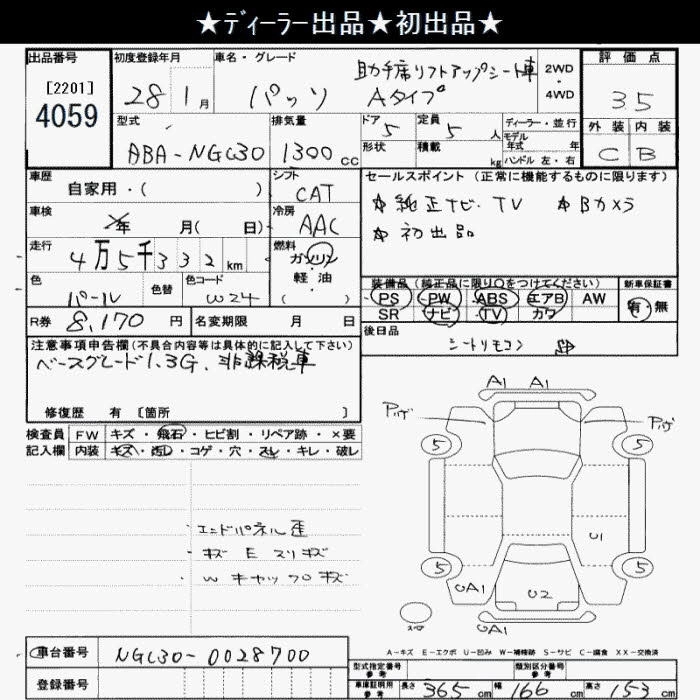 ★ディーラー出品★初出品★
出品番号 初度登録年月 車名・グレード 評価点
[2201] 28 1月 パッソ 助手席リフトアップシート車 2WD・4WD
4059 Aタイプ 35
型式 排気量 ドア 定員 ディーラー・並行 外装 内装
ABA-NGC30 1300cc 5 5人 モデル年式 年 C B
形状 積載 kg ハンドル 左・右
車歴 シフト セールスポイント(正常に機能するものに限ります)
自家用・( ) CAT ☆純正ナビ・TV ☆Bカメラ
車検 冷房 ☆初出品
年 月( 日) AAC
走行 燃料
4万5千332km ガソリン・軽油
色 色替 色コード ( )
パール W24
装備品(純正品に限り○をつけてください) 新車保証書
PS PW ABS エアB AW 有・無
SR ナビ TV カワ
R券 8,170円 名変期限 月 日 後日品
シートリモコン
注意事項申告欄(不具合内容等は具体的に記入して下さい)
ベースグレード1.3G、非課税車
修復歴 有 [箇所 ]
検査員 FW キズ・飛石・ヒビ割・リペア跡・×要
記入欄 内装 キズ・汚レ・コゲ・穴・スレ・キレ・破レ
A1 A1
5 5
・エンドパネル歪
・キズ E スリキズ
・Wキャップキズ
U1
5 5
UA1 U2
スペア UA1
A-キズ E-エクボ U-凹み W-補修跡 S-サビ C-腐食 XX-交換済
車台番号 NGC30-0028700
登録番号
型式指定番号 参考 類別区分番号 参考
車庫証明用 参考 長さ 365cm 幅 166cm 高さ 153cm